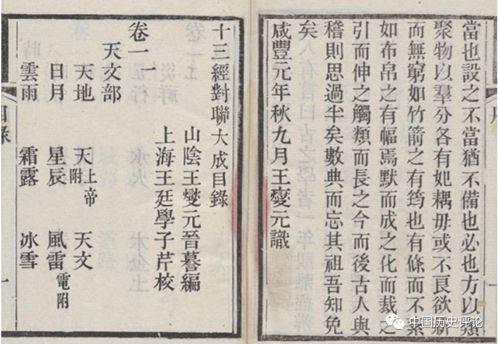 當也設之不當猶不備也必也方以類
聚物以羣分各有妃耦毋或不良欲新
而無窮如竹箭之有筠也有條而不紊
如布帛之有幅焉默而成之化而裁之
引而伸之觸類而長之今而後古人與
稽則思過半矣數典而忘其祖吾知免
矣
咸豐元年秋九月王燮元識
十三經對聯大成目錄
山陰王燮元晉編
上海王廷學子芹校
卷一
天文部
天地 天上帝附 天文
日月 星辰 風雷電附
雲雨 霜露 冰雪
目錄
一
中国历史评论